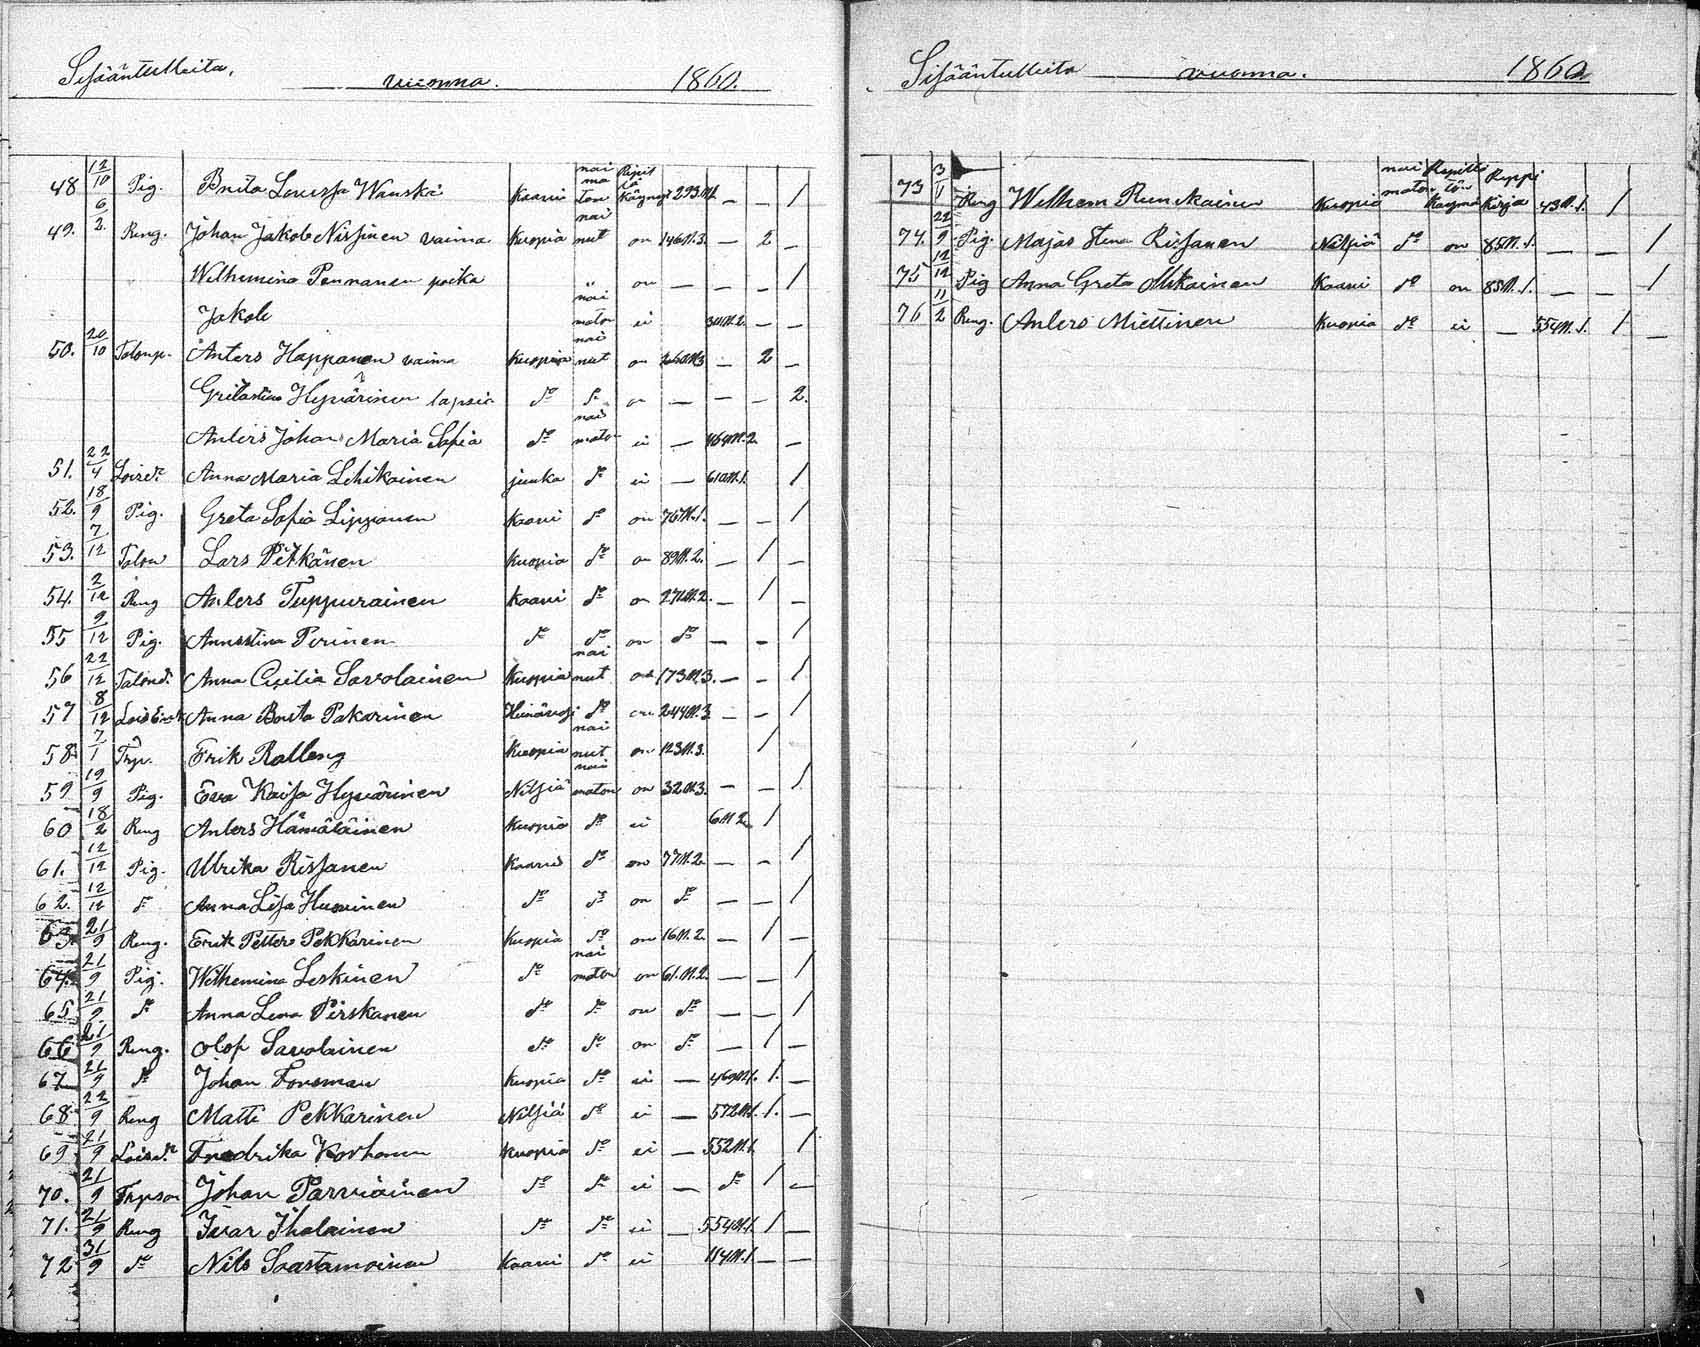 Sisääntulleita, vuonna. 1860.
48 12/10 Pig. Brita Lovissa Wauski Kaavi naimaton Ripillä käynyt 293 N2 — — /
49. 6/2 Reng. Johan Jakob Nissinen vaimo Kuopia nainut on 146 N.3. — 2 —
Wilhemina Pennanen poika " on — — — /
Jakob naimaton ei 30 N.2. — —
50. 20/10 Talonp. Anters Happonen vaimo Kuopia nainut on 260 N3 — 2 —
Gretastina Hyvärinen lapsia do do on — — — 2.
Anders Johan Maria Sofia do naimaton ei — 464 N.2 —
51. 22/4 Loisdr. Anna Maria Lehikoinen juuka do ei — 610 N.1. /
52. 18/9 Pig. Greta Sofia Lipponen Kaavi do on 767 N.1. — — /
53. 7/12 Talon Lars Pitkänen Kuopia do on 89 N.2. — / —
54. 2/12 Reng Anders Tuppurainen Kaavi do on 271 N.2. — / —
55 9/12 Pig. Annastina Pirinen do do on do — — /
56 22/12 Talondr. Anna Cisilia Savolainen Kuopia nainut on 173 N.3. — — /
57 8/12 Anna Brita Pakarinen Heinävesi do on 244 N.3 — — /
58 7/1 Frik Rolleng Kuopia nainut on 123 N.3. /
59 19/9 Pig. Eva Kaisa Hyvärinen Nilsiä naimaton on 32 N.3. — — /
60 18/2 Reng Anders Hämäläinen Kuopia do ei 6 N 2. /
61. 12/12 Pig. Ulrika Rissanen Kaavi do on 77 N.2. — — /
62. 12/12 do Anna Lisa Huovinen do do on do — — /
63. 21/9 Reng. Erik Petter Pekkarinen Kuopia do on 16 N.2. — / —
64. 21/9 Pig. Wilhemina Leskinen do naimaton on 61. N.2. — — /
65 21/9 do Anna Lena Pirskanen do do on do — — /
66 21/9 Reng. Olof Savolainen do do on do — / —
67 21/9 do Johan Forsman Kuopia do ei — 469 N.1. 1. —
68 22/9 Reng Matti Pekkarinen Nilsiä do ei — 572 N.1. 1. —
69 21/9 Loisdr. Fredrika Korhonen Kuopia do ei — 552 N.1. /
70. 21/9 Johan Parviainen do do ei — do / —
71. 21/9 Reng Ivar Iholainen do do ei — 554 N.1. / —
72 31/9 do Nils Saastamoinen Kaavi do ei 114 N.1. — —
Sisääntulleita vuonna. 1860
73 3/11 Reng Wilhem Runkainen Kuopia naimaton Ripillä käymätön Rippi kirja 43 N.1. /
74. 22/9 Pig. Majas Stena Rissanen Nilsiä do on 85 N.1. — — /
75 12/12 Pig Anna Greta Mikainen Kaavi do on 85 N.1. — — /
76 11/2 Reng. Anders Miettinen Kuopia do ei — 554 N.1. / —